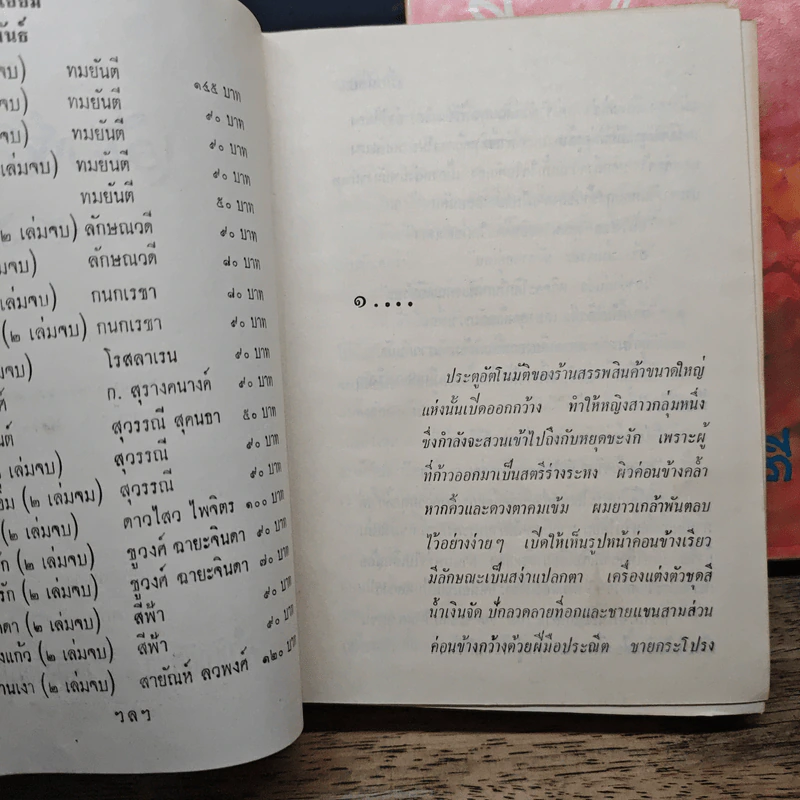 นธ์
จบ) ทมยันตี ๑๔๕ บาท
จบ) ทมยันตี ๙๐ บาท
จบ) ทมยันตี ๙๐ บาท
เล่มจบ) ทมยันตี ๙๐ บาท
ทมยันตี ๕๐ บาท
๒ เล่มจบ) ลักษณวดี ๙๐ บาท
มจบ) ลักษณวดี ๘๐ บาท
เล่มจบ) กนกเรขา ๘๐ บาท
(๒ เล่มจบ) กนกเรขา ๙๐ บาท
จบ) โรสลาเรน ๙๐ บาท
ก. สุรางคนางค์ ๙๐ บาท
สุวรรณี สุคนธา ๕๐ บาท
เล่มจบ) สุวรรณี ๙๐ บาท
(๒ เล่มจบ) สุวรรณี ๙๐ บาท
(๒ เล่มจบ) ดาวไสว ไพจิตร ๑๐๐ บาท
รัก (๒ เล่มจบ) ชูวงศ์ ฉายะจินดา ๙๐ บาท
รัก (๒ เล่มจบ) ชูวงศ์ ฉายะจินดา ๗๐ บาท
ดา (๒ เล่มจบ) สีฟ้า ๙๐ บาท
งแก้ว (๒ เล่มจบ) สีฟ้า ๙๐ บาท
านเงา (๒ เล่มจบ) สายัณห์ ลวพงศ์ ๑๒๐ บาท
ฯลฯ
๑ ....
ประตูอัตโนมัติของร้านสรรพสินค้าขนาดใหญ่
แห่งนั้นเปิดออกกว้าง ทำให้หญิงสาวกลุ่มหนึ่ง
ซึ่งกำลังจะสวนเข้าไปถึงกับหยุดชะงัก เพราะผู้
ที่ก้าวออกมาเป็นสตรีร่างระหง ผิวค่อนข้างคล้ำ
หากคิ้วและดวงตาคมเข้ม ผมยาวเกล้าพันตลบ
ไว้อย่างง่ายๆ เปิดให้เห็นรูปหน้าค่อนข้างเรียว
มีลักษณะเป็นสง่าแปลกตา เครื่องแต่งตัวชุดสี
น้ำเงินจัด ปักลวดลายที่อกและชายแขนสามส่วน
ค่อนข้างกว้างด้วยฝีมือประณีต ชายกระโปรง